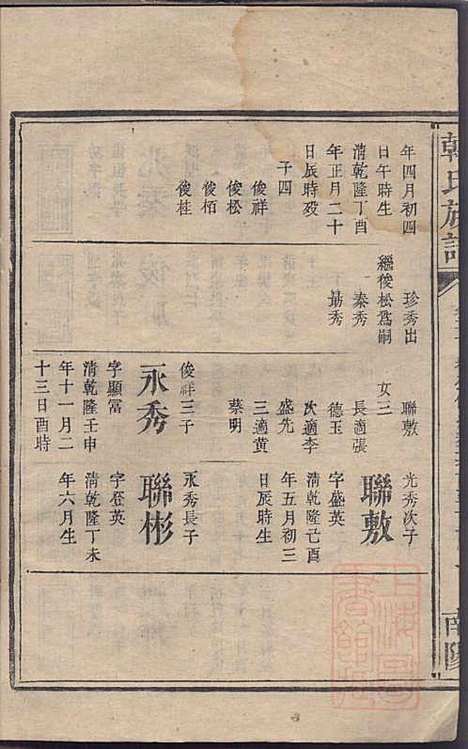 韓氏族譜
南陽
年四月初四
日午時生
清乾隆丁酉
年正月二十
日辰時殁
子四
俊祥
俊松
俊栢
俊桂
珍秀出
繼俊松爲嗣
秦秀
勗秀
聯敷
女三
長適張
德玉
次適李
盛先
三適黄
蔡明
俊祥三子
永秀
字顯富
清乾隆壬申
年十一月二
十三日酉時
光秀次子
聯敷
字盛英
清乾隆己酉
年五月初三
日辰時生
永秀長子
聯彬
字丕英
清乾隆丁未
年六月生
上海圖
書館藏